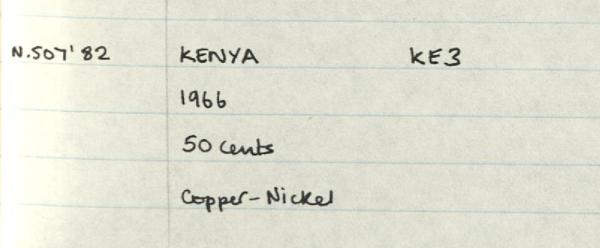 N.507'82 KENYA KE3
1966
50 cents
Copper-Nickel